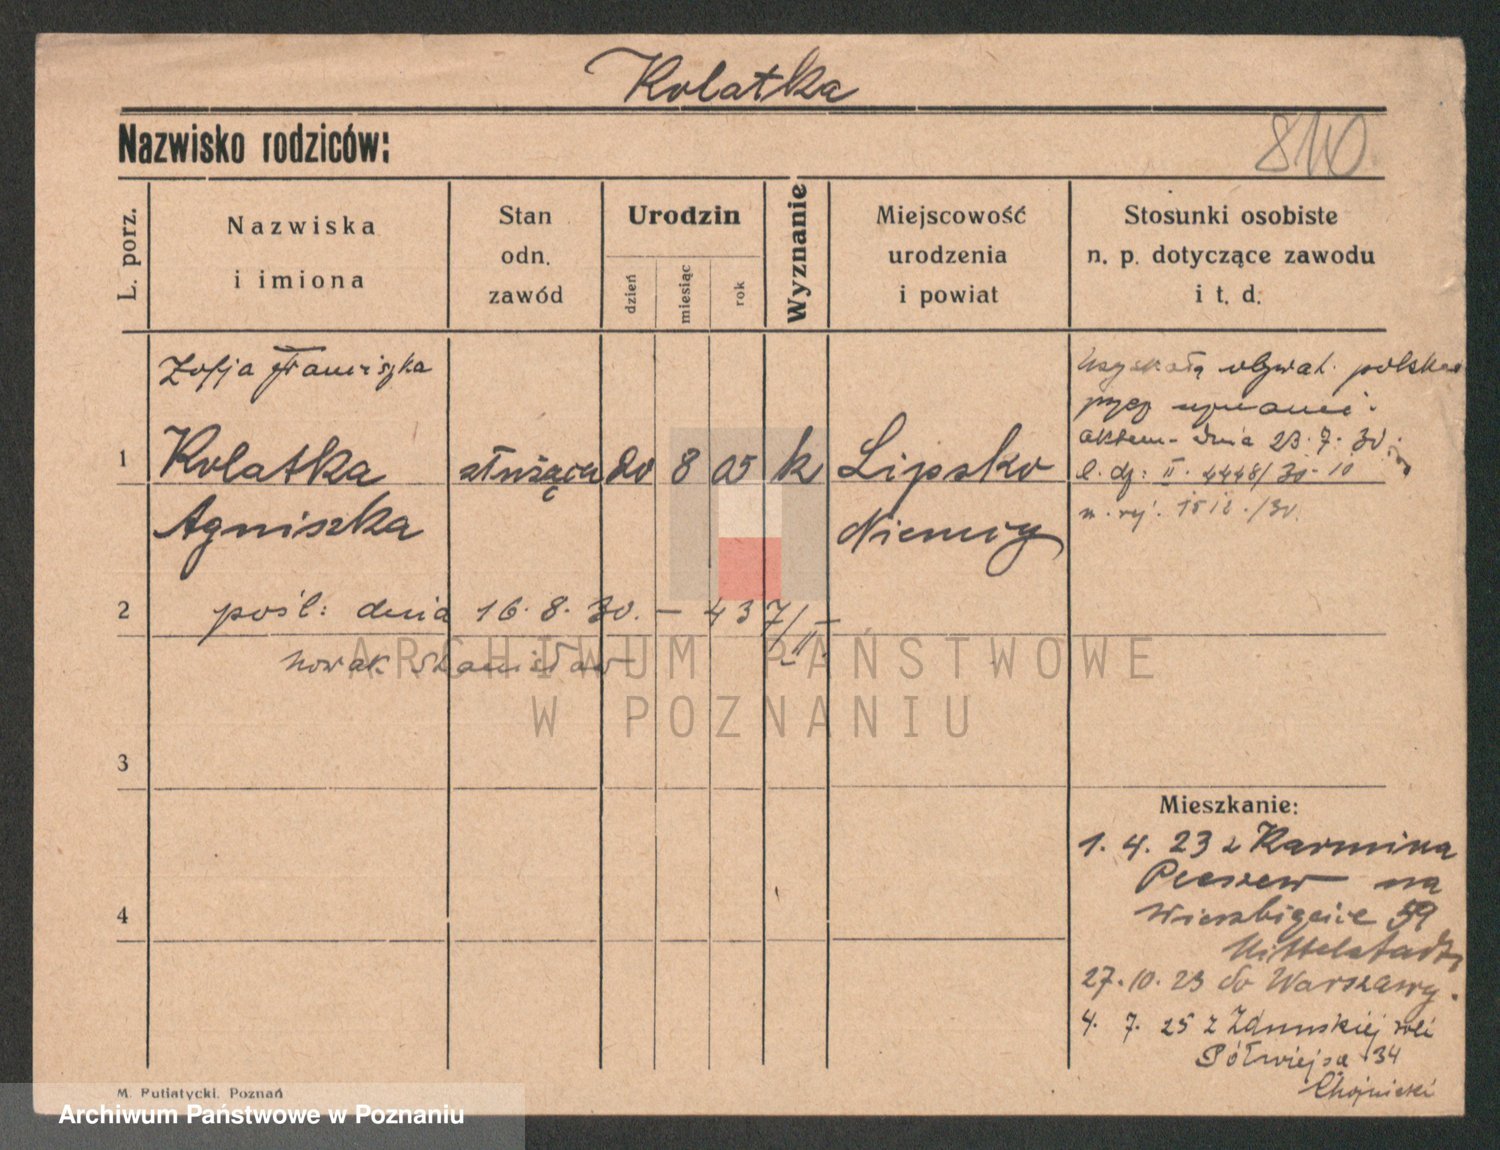 Kolatka
Nazwisko rodziców:
810
L. porz.
Nazwiska
i imiona
Stan
odn.
zawód
Urodzin
dzień
miesiąc
rok
Wyznanie
Miejscowość
urodzenia
i powiat
Stosunki osobiste
n. p. dotyczące zawodu
i t. d.
Zofja Franciszka
1 Kolatka służąca 20 8 05 k Lipsko
Agniszka Niemcy
uzyskała obywat. polskie
przez uznanie
aktem dnia 23.7.30.
l. dz: II. 4448/30-10
n. rej. 1512/30.
2 pośl: dnia 16.8.30. – 437/II –
Nowak Stanisław
3
4
Mieszkanie:
1. 4. 23 z Karmina
Pleszew na
Wierzbięcice 59
Mittelstadt
27.10.23 do Warszawy.
4. 7. 25 z Zduńskiej Woli
Półwiejsa 34
Chojnicki
M. Putiatycki. Poznań
ARCHIWUM PAŃSTWOWE
W POZNANIU
Archiwum Państwowe w Poznaniu